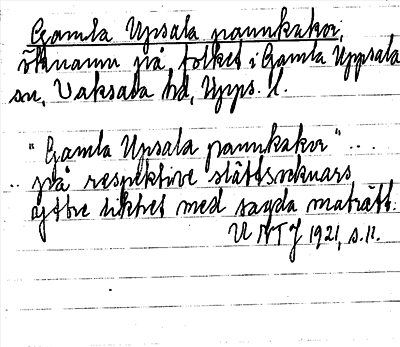 Gamla Upsala pannkakor,
öknamn på folket i Gamla Uppsala
sn, Vaksala hd, Upps. l.
"Gamla Upsala pannkakor" ...
.. på respektive slättsocknars
yttre likhet med sagda maträtt.
UNTJ 1921, s. 11.